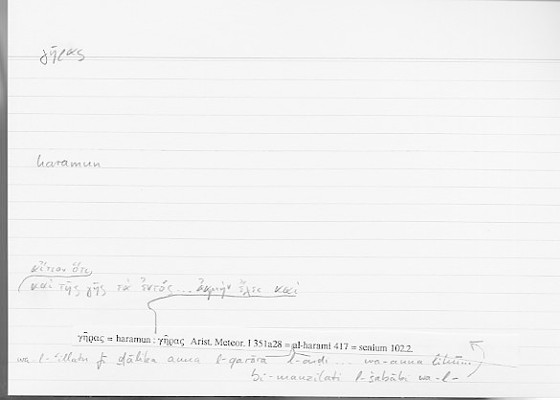 γῆρας
haramun
αἴτιον ὅτι
καὶ τῆς γῆς τὰ ἐντός ... ἀκμὴν ἔχει καὶ
γῆρας = haramun : γῆρας Arist. Meteor. I 351a28 = al-harami 417 = senium 102.2.
wa-l-ʿillatu fī ḏālika anna l-qarāra l-arḍi ... wa-anna
bi-manzilati l-šabābi wa-l-